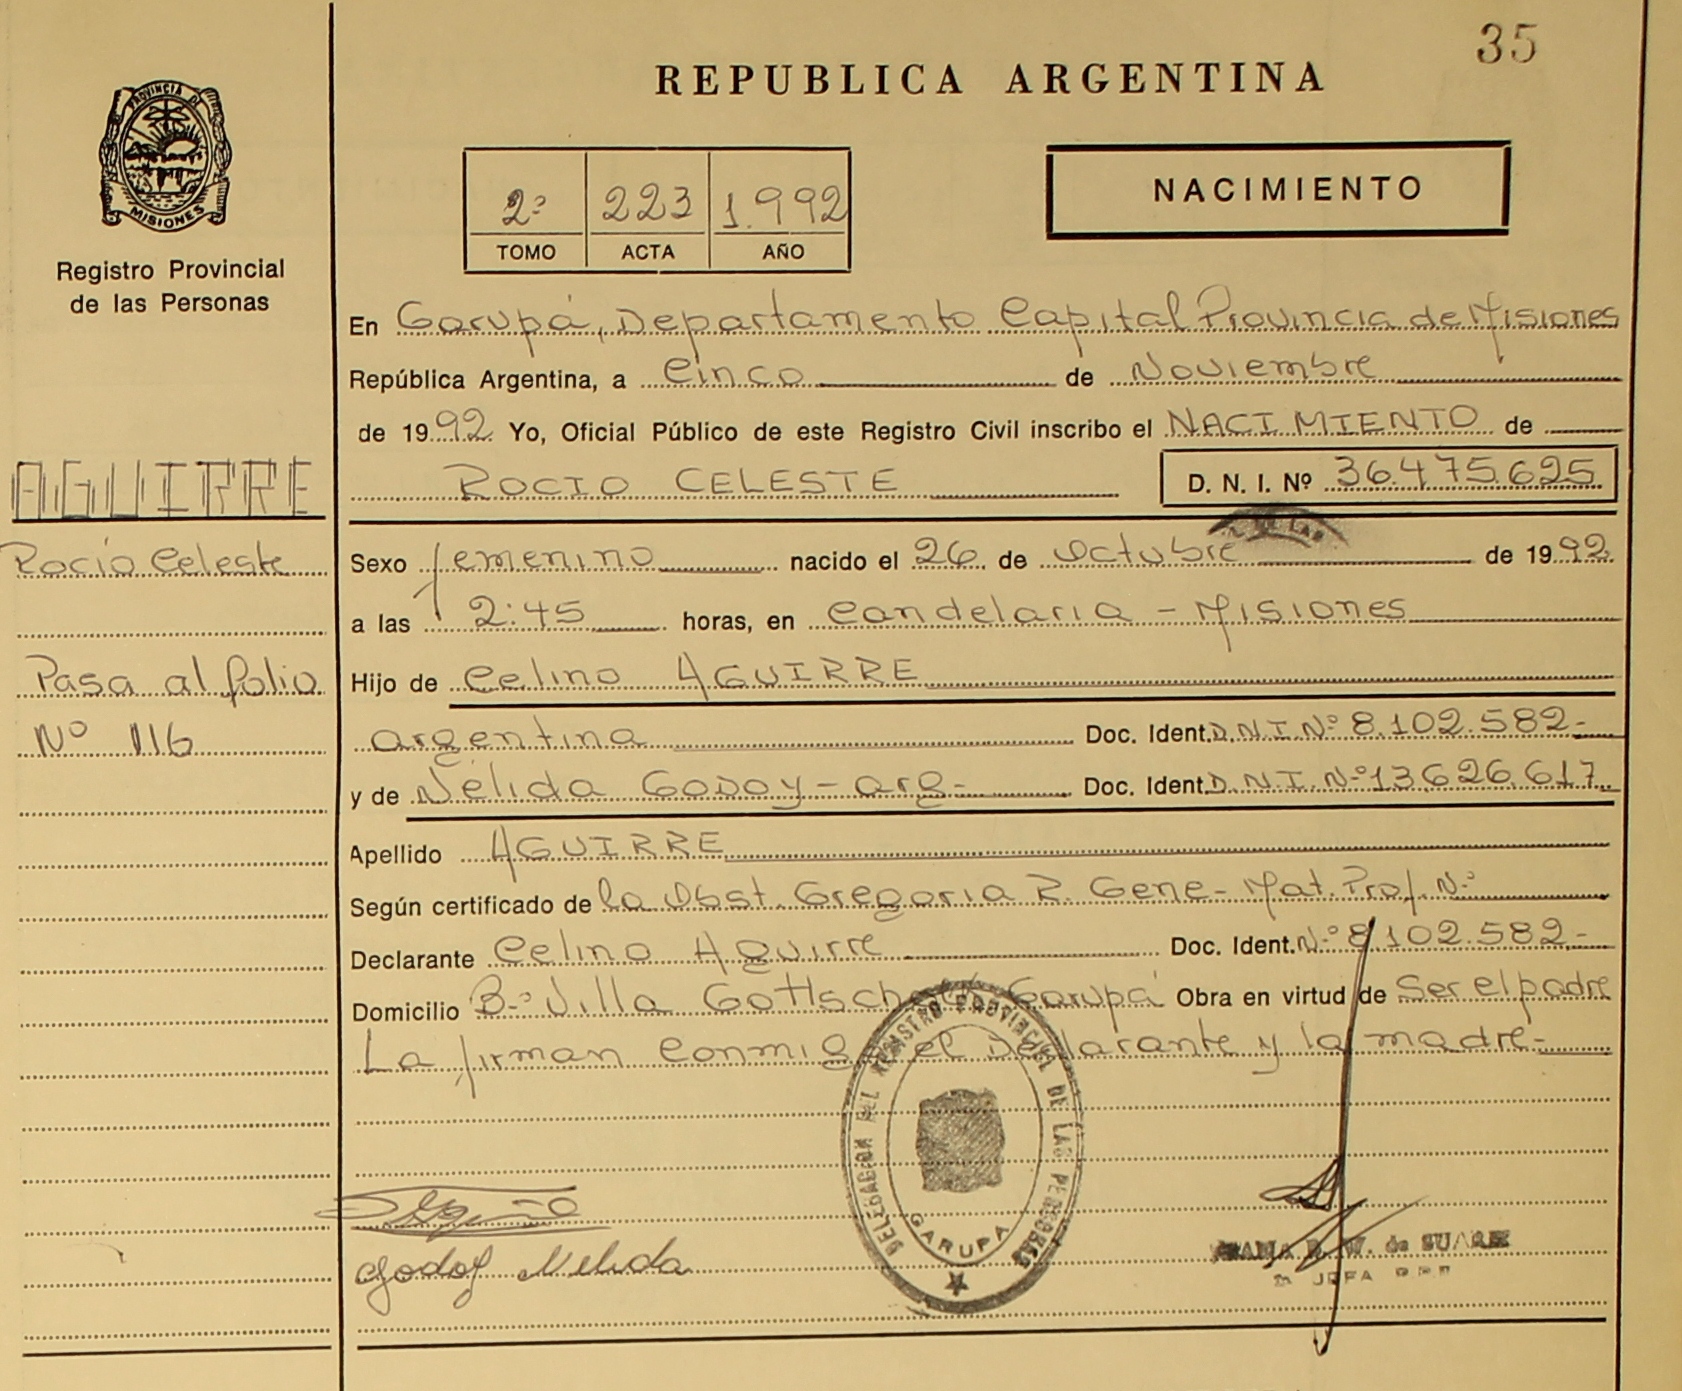 35
REPUBLICA ARGENTINA
PROVINCIA DE
MISIONES
Registro Provincial
de las Personas
2º 223 1.992
TOMO ACTA AÑO
NACIMIENTO
En Garupá, Departamento Capital Provincia de Misiones
República Argentina, a Cinco de Noviembre
de 1992 Yo, Oficial Público de este Registro Civil inscribo el NACIMIENTO de
AGUIRRE
ROCIO CELESTE D. N. I. Nº 36.475.625
Rocío Celeste
Sexo femenino nacido el 26 de Octubre de 1992
a las 2:45 horas, en Candelaria - Misiones
Pasa al folio
Nº 116
Hijo de Celino AGUIRRE
argentina Doc. Ident. D.N.I. Nº 8.102.582-
y de Nélida Godoy - arg- Doc. Ident. D.N.I. Nº 13.626.617
Apellido AGUIRRE
Según certificado de la Obst. Gregoria R. Gene- Mat. Prof. Nº
Declarante Celino Aguirre Doc. Ident. Nº 8.102.582-
Domicilio Bº Villa Gottschalk Garupá Obra en virtud de Ser el padre
La firman conmigo el Declarante y la madre-
DELEGACION DEL REGISTRO PROVINCIAL DE LAS PERSONAS
GARUPA
Godoy Nelida
W. de SUAREZ
JEFA